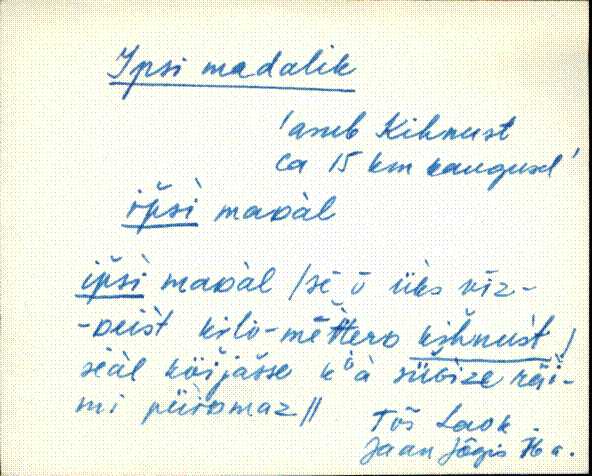 Ipsi madalik
'asub Kihnust
ca 15 km kaugusel'
ip̌si maᴅàl
ip̌si maᴅàl /sē ō üks vīz-
-ᴅeist kilo-mēttero kihnust /
seàl köijässe kòà süvize räi-
mi püiᴅamaz //
Tõs Laok.
Jaan Jõgis 76 a.